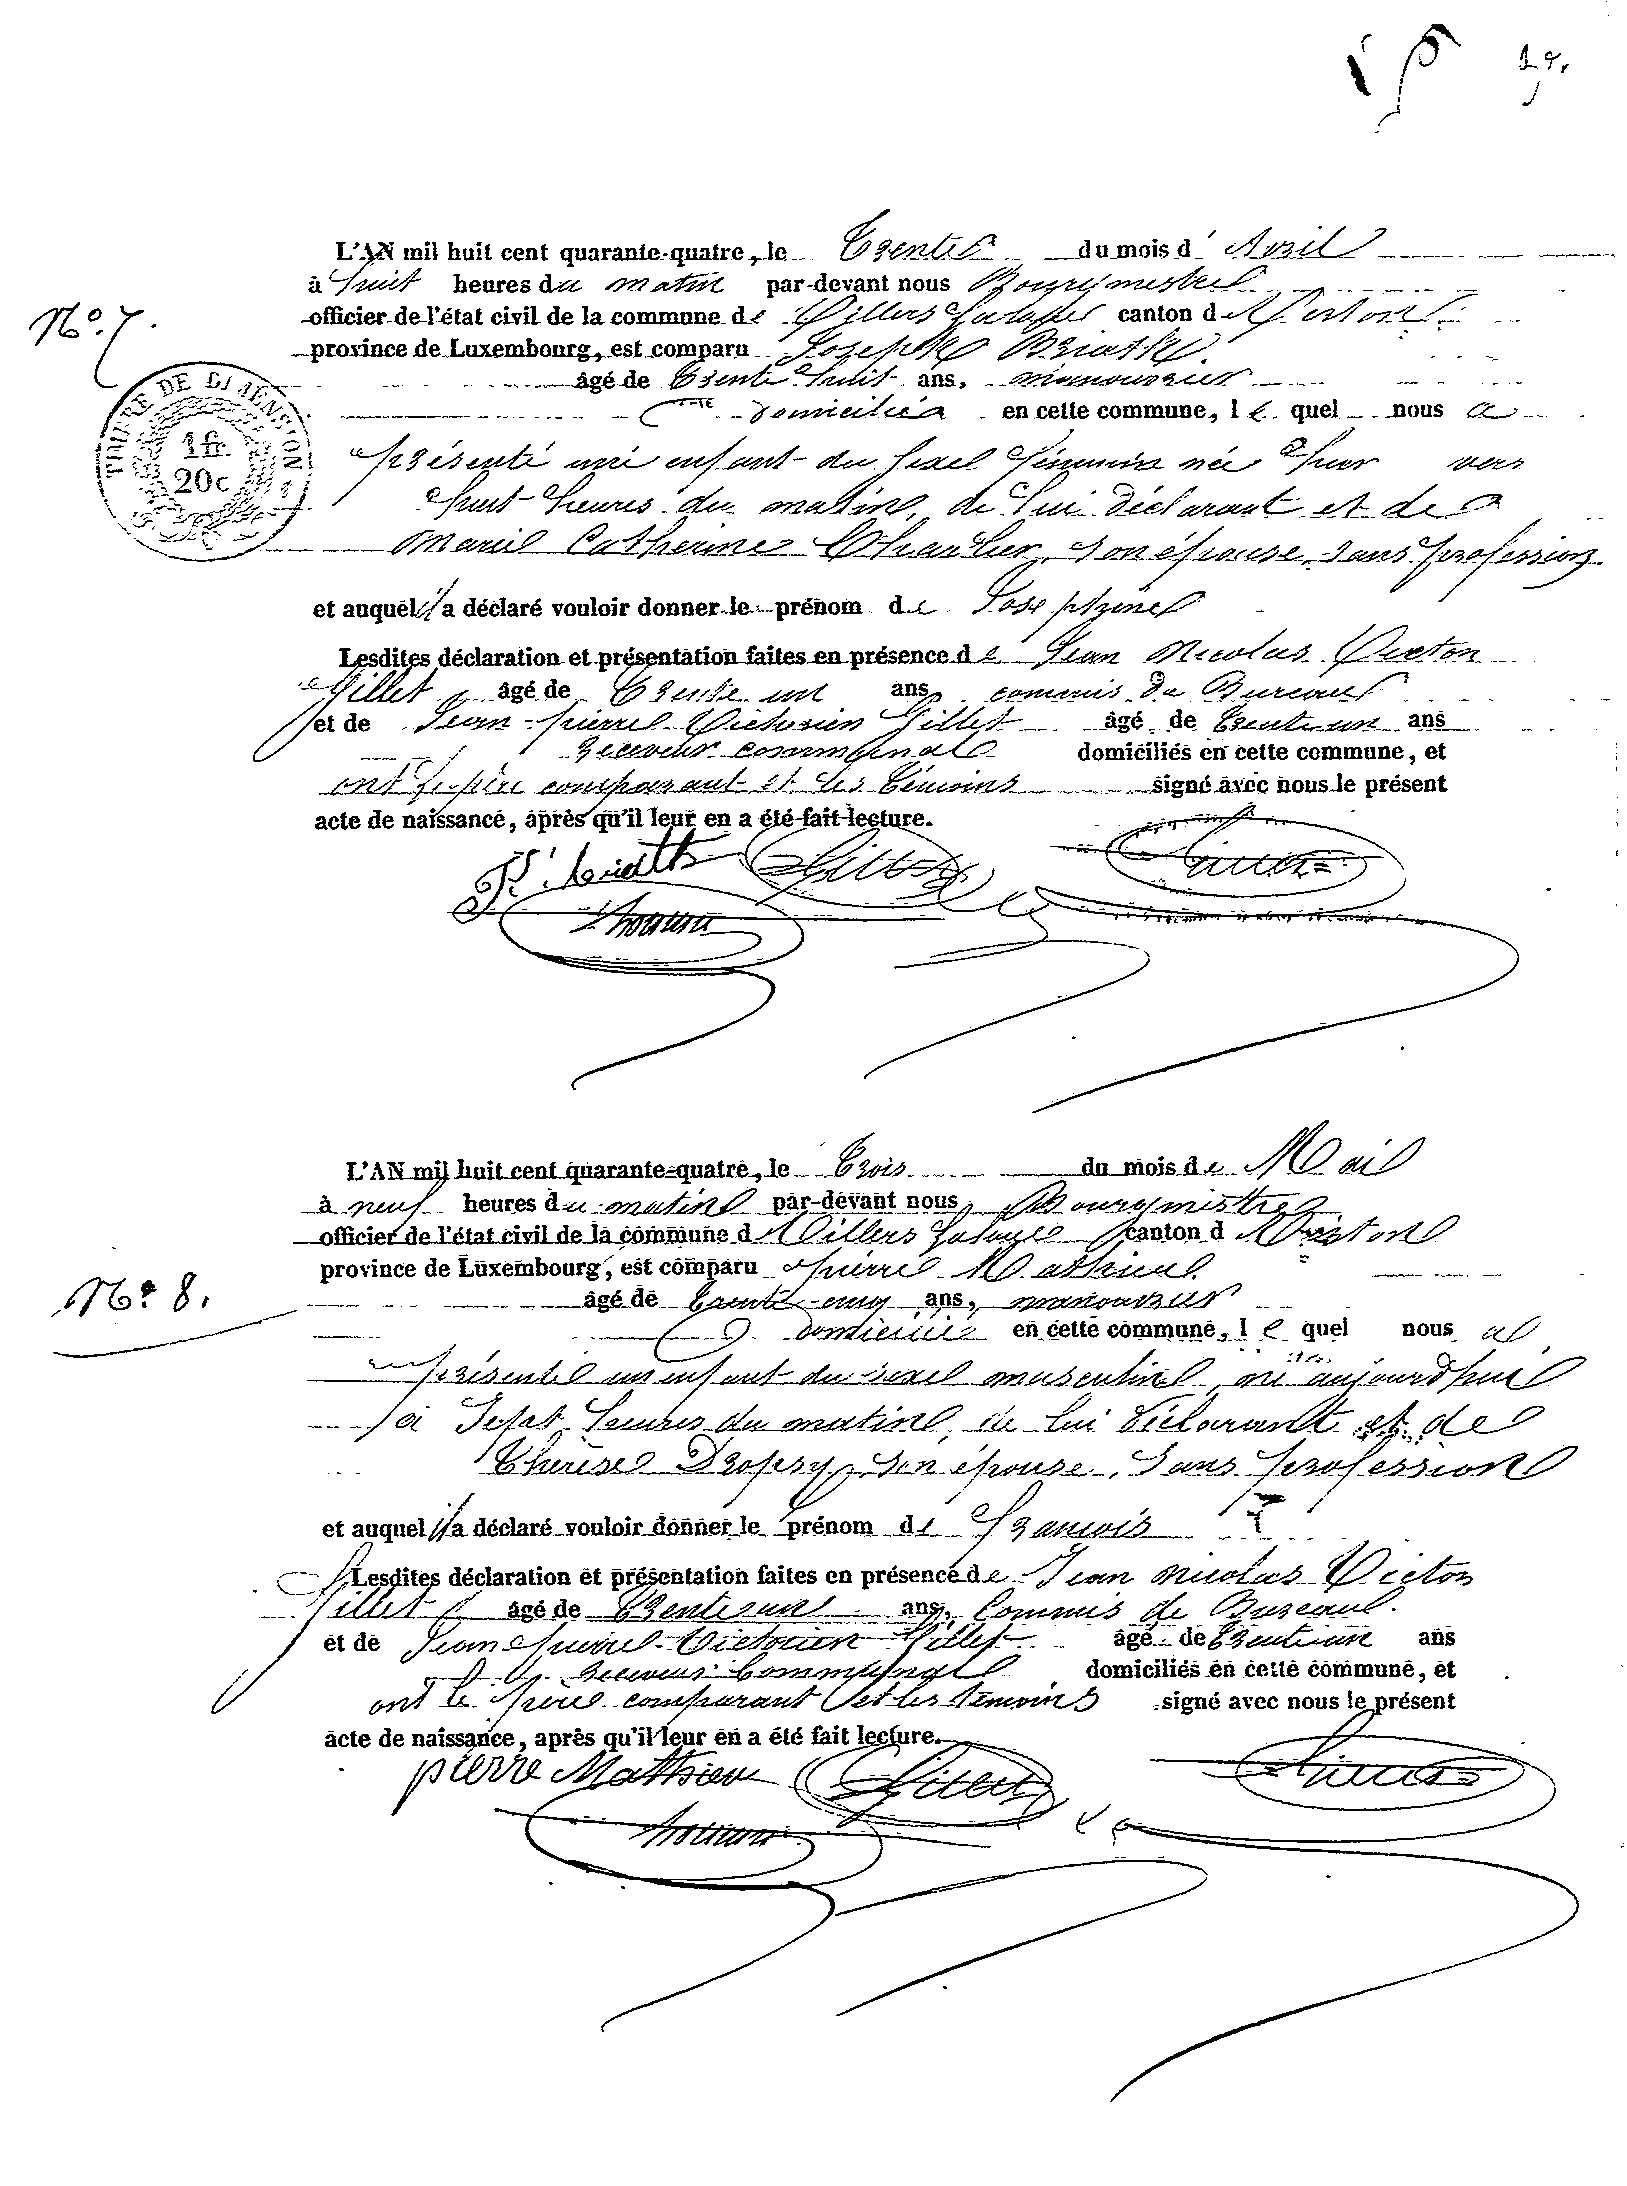 N.° 7.
TIMBRE DE DIMENSION
1 fr.
20 c
L'AN mil huit cent quarante-quatre, le Trente du mois d'Avril
à huit heures du matin par-devant nous Bourgmestre
officier de l'état civil de la commune de Villers Laloye canton de Virton
province de Luxembourg, est comparu Joseph Briath
âgé de Trente huit ans, manouvrier
domicilié en cette commune, lequel nous a
présenté une enfant du sexe féminin née hier vers
huit heures du matin, de lui déclarant et de
Marie Catherine Charlier, son épouse, sans profession
et auquel il a déclaré vouloir donner le prénom de Josephine
Lesdites déclaration et présentation faites en présence de Jean Nicolas Victor
Gillet âgé de Trente un ans, commis de Bureau
et de Jean-pierre Victorien Gillet âgé de trente un ans
receveur communal domiciliés en cette commune, et
ont le père comparant et les témoins signé avec nous le présent
acte de naissance, après qu'il leur en a été fait lecture.
Gillet
L'AN mil huit cent quarante-quatre, le Trois du mois de Mai
à neuf heures du matin par-devant nous Bourgmestre
officier de l'état civil de la commune d Villers Laloye canton d Virton
province de Luxembourg, est comparu pierre Mathieu
N.° 8.
âgé de trente-cinq ans, manouvrier
domicilié en cette commune, lequel nous a
présenté un enfant du sexe masculin, né aujourd'hui
à Sept heures du matin, de lui déclarant et de
Thérèse Dropsy, son épouse, sans profession
et auquel il a déclaré vouloir donner le prénom de François
Lesdites déclaration et présentation faites en présence de Jean Nicolas Victor
Gillet âgé de Trente un ans, Commis de Bureau.
et de Jean pierre Victorien Gillet âgé de Trente un ans
receveur Communal domiciliés en cette commune, et
ont le père comparant et les témoins signé avec nous le présent
acte de naissance, après qu'il leur en a été fait lecture.
pierre Mathieu Gillet